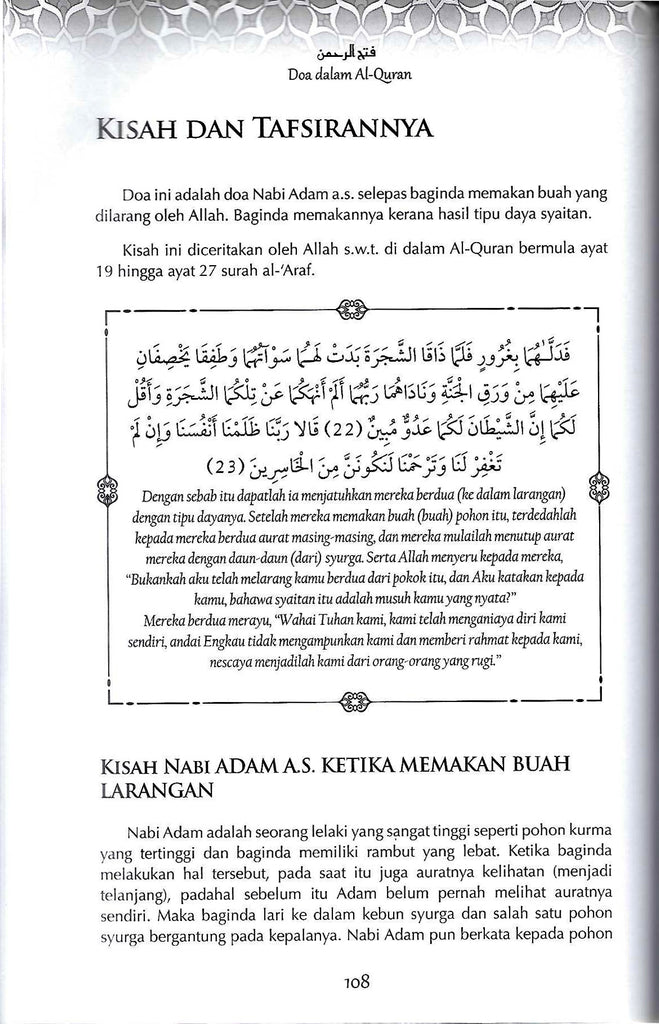 فتح الرحمن
Doa dalam Al-Quran
KISAH DAN TAFSIRANNYA
Doa ini adalah doa Nabi Adam a.s. selepas baginda memakan buah yang
dilarang oleh Allah. Baginda memakannya kerana hasil tipu daya syaitan.
Kisah ini diceritakan oleh Allah s.w.t. di dalam Al-Quran bermula ayat
19 hingga ayat 27 surah al-'Araf.
فَدَلَّـٰهُمَا بِغُرُورٍ فَلَمَّا ذَاقَا الشَّجَرَةَ بَدَتْ لَهُمَا سَوْآتُهُمَا وَطَفِقَا يَخْصِفَانِ
عَلَيْهِمَا مِنْ وَرَقِ الْجَنَّةِ وَنَادَاهُمَا رَبُّهُمَا أَلَمْ أَنْهَكُمَا عَنْ تِلْكُمَا الشَّجَرَةِ وَأَقُلْ
لَكُمَا إِنَّ الشَّيْطَانَ لَكُمَا عَدُوٌّ مُبِينٌ (22) قَالَا رَبَّنَا ظَلَمْنَا أَنْفُسَنَا وَإِنْ لَمْ
تَغْفِرْ لَنَا وَتَرْحَمْنَا لَنَكُونَنَّ مِنَ الْخَاسِرِينَ (23)
Dengan sebab itu dapatlah ia menjatuhkan mereka berdua (ke dalam larangan)
dengan tipu dayanya. Setelah mereka memakan buah (buah) pohon itu, terdedahlah
kepada mereka berdua aurat masing-masing, dan mereka mulailah menutup aurat
mereka dengan daun-daun (dari) syurga. Serta Allah menyeru kepada mereka,
"Bukankah aku telah melarang kamu berdua dari pokok itu, dan Aku katakan kepada
kamu, bahawa syaitan itu adalah musuh kamu yang nyata?"
Mereka berdua merayu, "Wahai Tuhan kami, kami telah menganiaya diri kami
sendiri, andai Engkau tidak mengampunkan kami dan memberi rahmat kepada kami,
nescaya menjadilah kami dari orang-orang yang rugi."
KISAH NABI ADAM A.S. KETIKA MEMAKAN BUAH
LARANGAN
Nabi Adam adalah seorang lelaki yang sangat tinggi seperti pohon kurma
yang tertinggi dan baginda memiliki rambut yang lebat. Ketika baginda
melakukan hal tersebut, pada saat itu juga auratnya kelihatan (menjadi
telanjang), padahal sebelum itu Adam belum pernah melihat auratnya
sendiri. Maka baginda lari ke dalam kebun syurga dan salah satu pohon
syurga bergantung pada kepalanya. Nabi Adam pun berkata kepada pohon
108